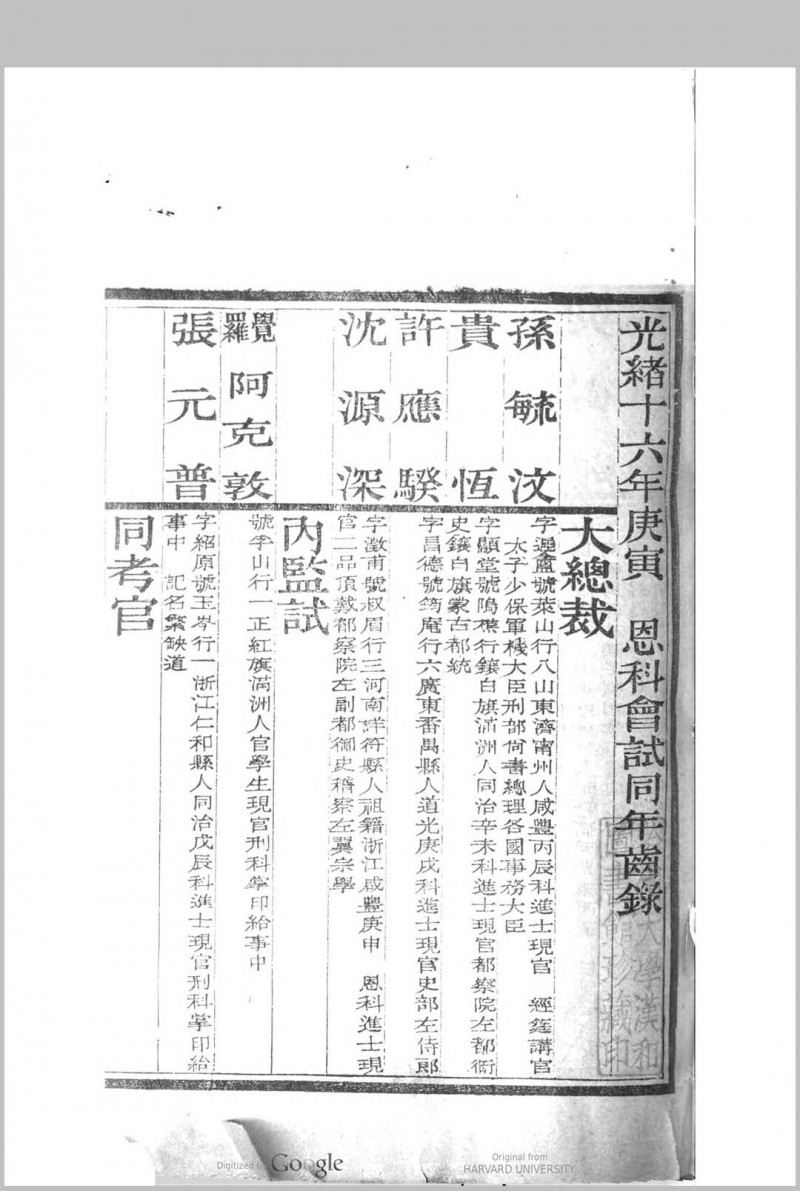 光緒十六年庚寅　恩科會試同年齒錄
大總裁
孫毓汶
字遲盦號萊山行八山東濟甯州人咸豐丙辰科進士現官　經筵講官
太子少保軍機大臣刑部尚書總理各國事務大臣
貴恆
字顯堂號塢樵行鑲白旗滿洲人同治辛未科進士現官都察院左都御
史鑲白旗蒙古都統
許應騤
字昌德號筠庵行六廣東番禺縣人道光庚戌科進士現官吏部左侍郎
沈源深
字澂甫號叔眉行三河南祥符縣人祖籍浙江咸豐庚申　恩科進士現
官二品頂戴都察院左副都御史稽察左翼宗學
內監試
覺羅阿克敦
號季山行一正紅旗滿洲人官學生現官刑科掌印給事中
張元普
字紹原號玉岑行一浙江仁和縣人同治戊辰科進士現官刑科掌印給
事中　記名繁缺道
同考官
大學漢和
圖書館珍藏印
Digitized by Google
Original from
HARVARD UNIVERSITY